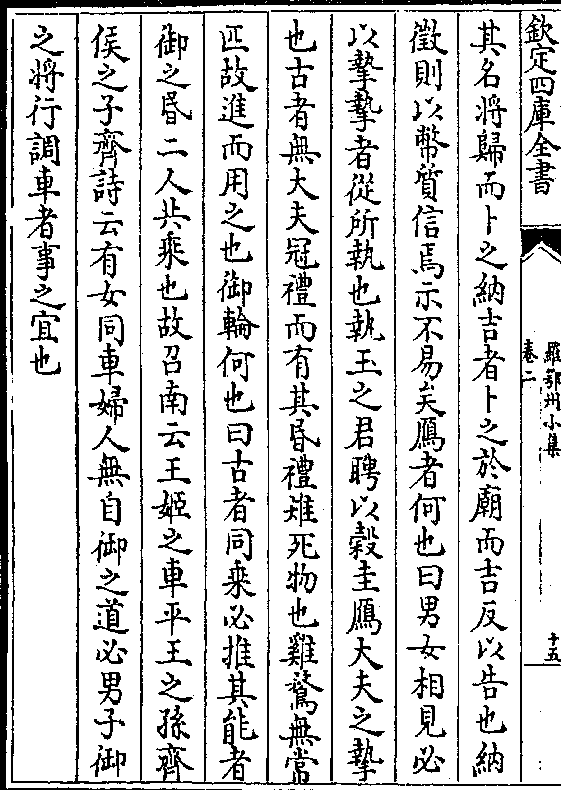 欽定四庫全書
羅鄂州小集
卷二
十五
其名將歸而卜之納吉者卜之於廟而吉反以告也納
徵則以幣質信焉示不易矣鴈者何也曰男女相見必
以摯摯者從所執也執玉之君聘以榖圭鴈大夫之摯
也古者無大夫冠禮而有其昏禮雉死物也雞鶩無常
匹故進而用之也御輪何也曰古者同乘必推其能者
御之昏二人共乘也故召南云王姬之車平王之孫齊
侯之子齊詩云有女同車婦人無自御之道必男子御
之將行調車者事之宜也